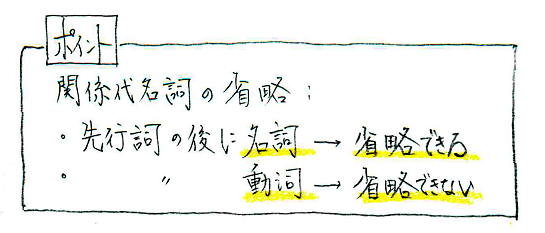 ポイント
関係代名詞の省略:
・先行詞の後に名詞→省略できる
・〃動詞→省略できない